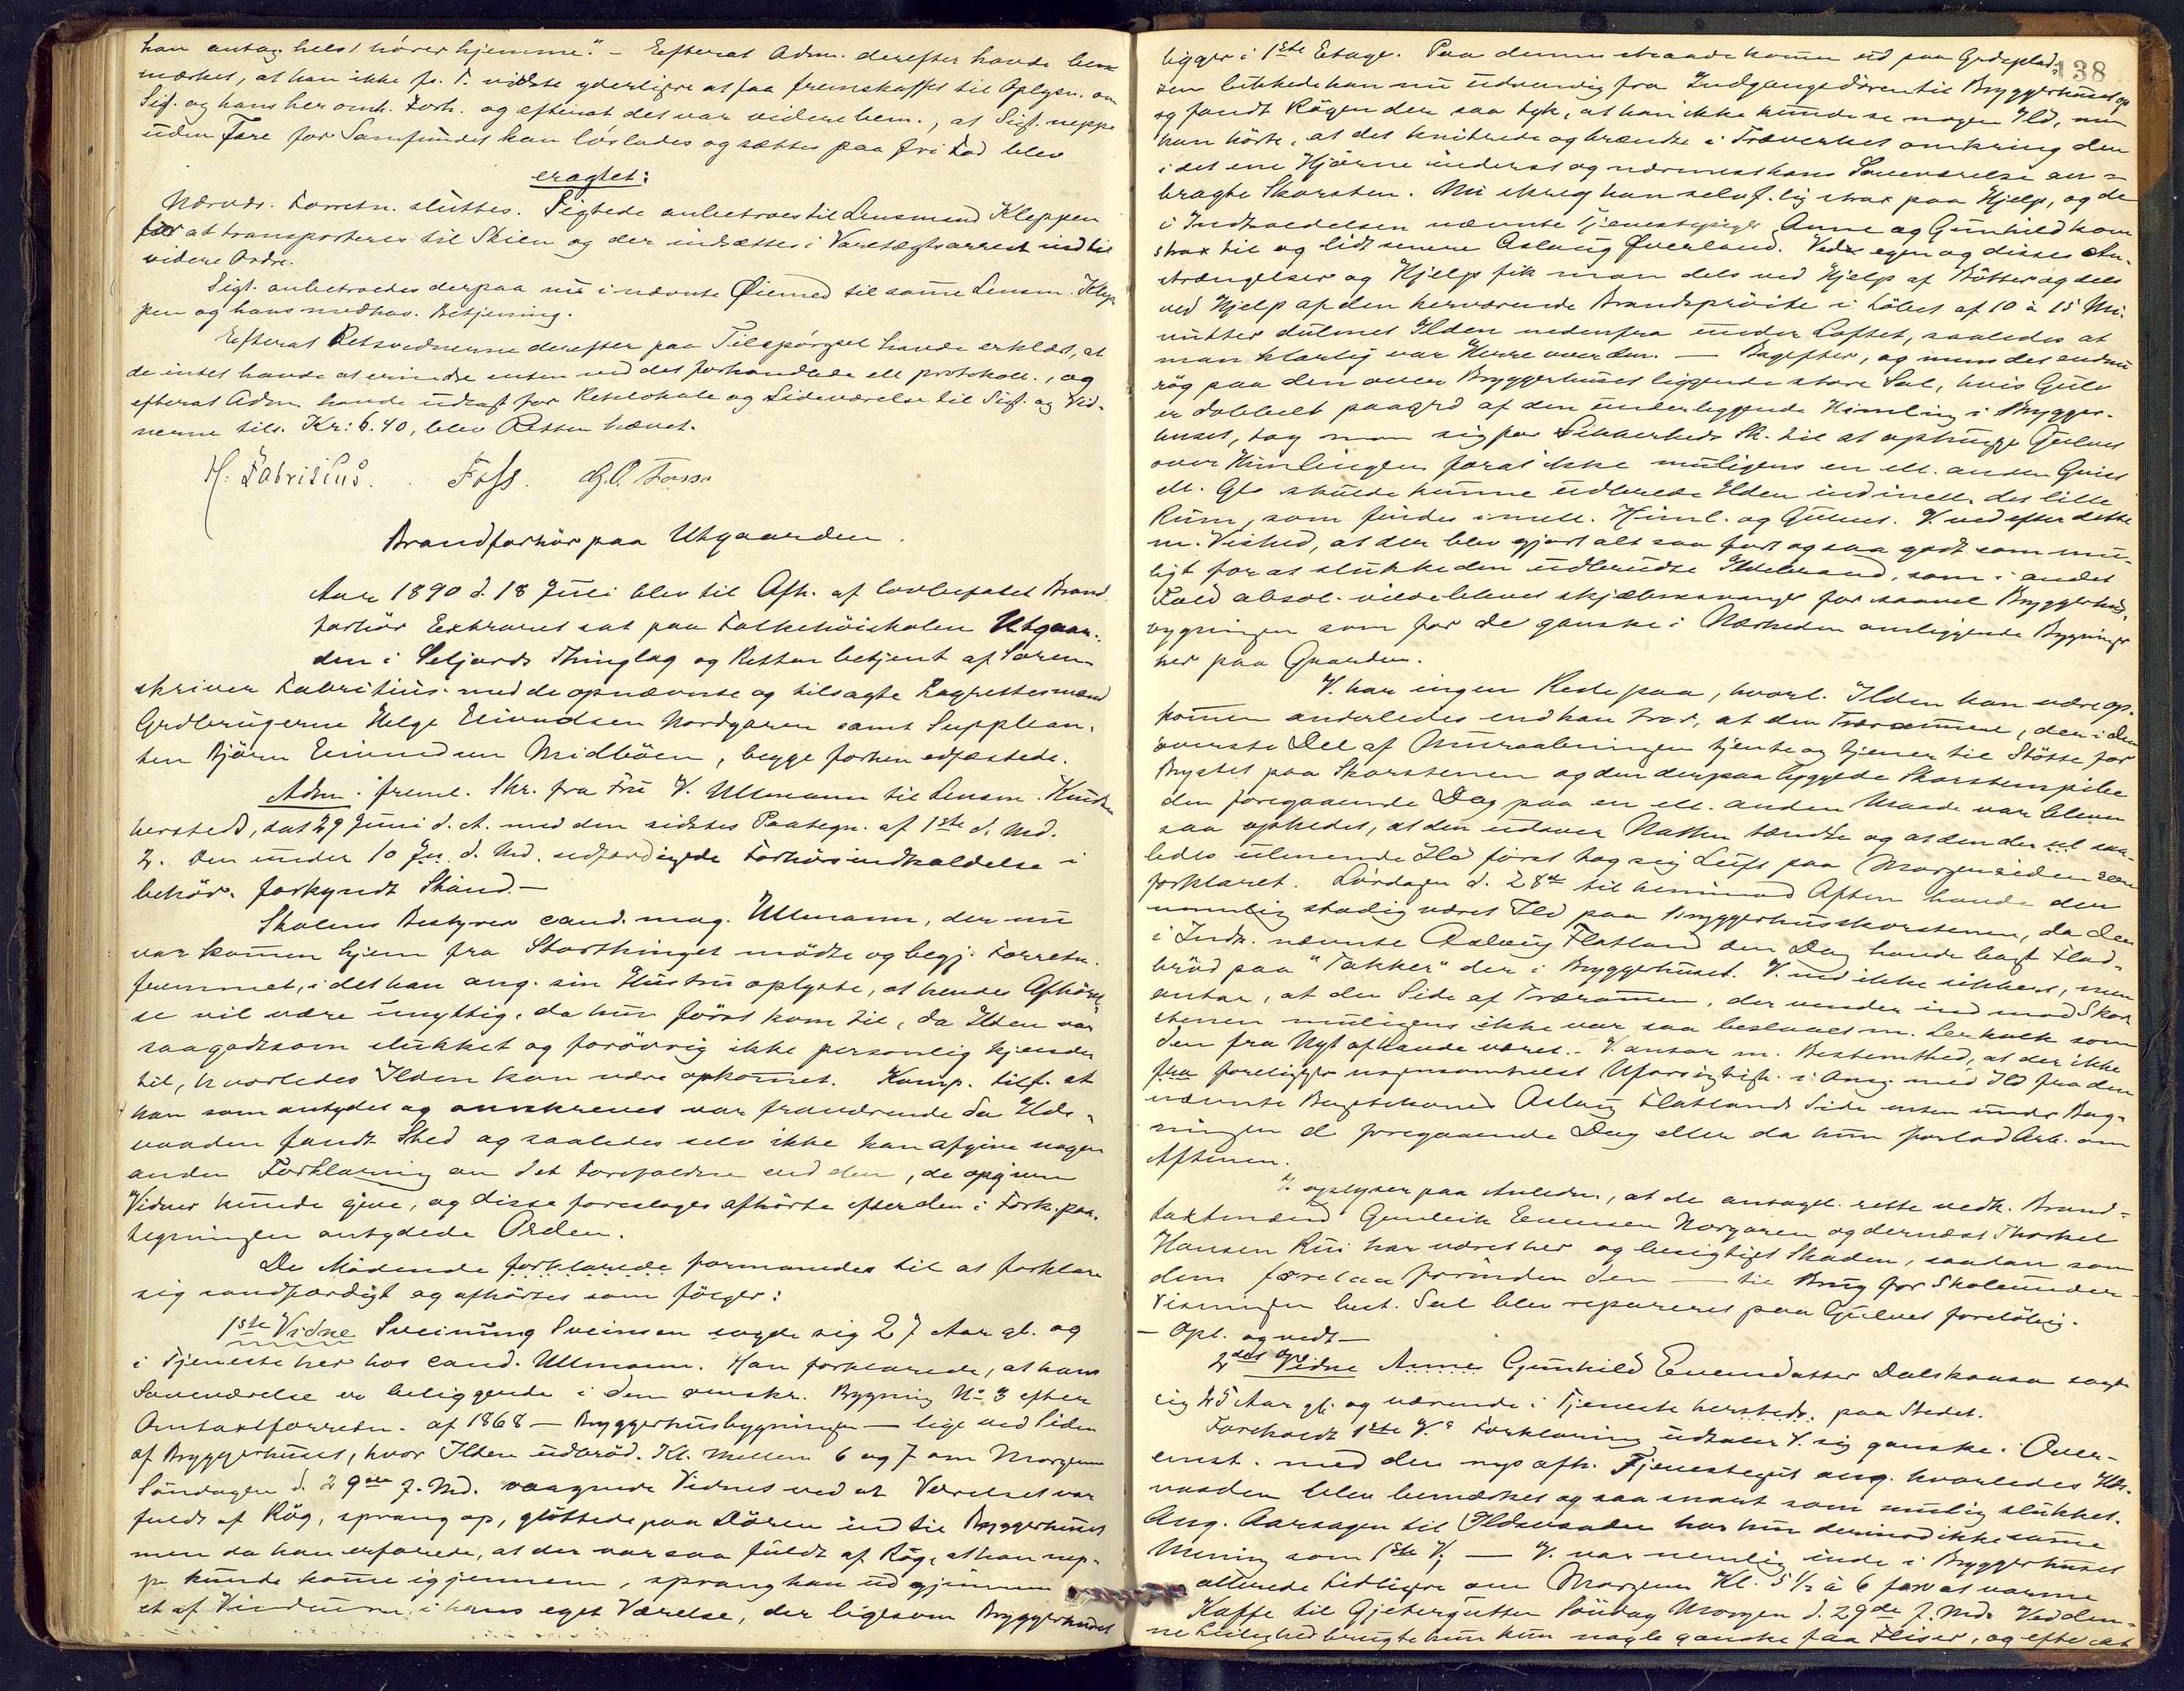 han antag. helst hører hjemme." – Efterat Adm. derefter havde be-
mærket, at han ikke p. T. vidste yderligere at faa fremskaffet til Oplysn. om
Sigt. og hans her omh. Forh. og efterat det var videre bem., at Sigt. neppe
uden Fare for Samfundet kan løslades og sættes paa fri Fod blev
eragtet:
Nærvær. Forretn. sluttes. Sigtede anbetroes til Lensmand Kleppen
for at transporteres til Skien og der indsættes i Varetægtsarrest indtil
videre Ordre.
Sigt. anbetroedes derpaa nu i nævnte Øiemed til samme Lensm. Klep-
pen og hans medhav. Betjening.
Efterat Retsvidnerne derefter paa Tilspørgsel havde erklært, at
de intet havde at erindre enten ved det forhandlede ell. protokoll., og
efterat Adm. havde udlagt for Retslokale og Sideværelse til Sigt. og Vid-
nerne tils. Kr: 6.40, blev Retten hævet.
H. Fabritius. Foss.
Brandforhør paa Utgaarden.
Aar 1890 d. 18 Juli blev til Afh. af lovbefalet Brand-
forhør Extraret sat paa Folkehøiskolen Utgaar-
den i Seljords Thinglag og Retten betjent af Soren-
skriver Fabritius med de opnævnte og tilsagte Lagrettesmænd
Grdbrugerne Helge Eivindsen Nordgaren samt Supplean-
ten Bjørn Eivindsen Midbøen, begge forhen edfæstede.
Adm. freml. Skr. fra Fru V. Ullmann til Lensm.
herstedt, dat 29 Juni d. A. med den sidstes Paategn. af 1ste d. Md.
2. Den under 10 ds. d. Md. udfærdigede Forhørsindkaldelse i
behør. forkyndt Stand. –
Skolens Bestyrer cand. mag. Ullmann, der nu
var kommen hjem fra Storthinget mødte og begj. Forretn.
fremmet, idet han ang. sin Hustru oplyste, at hendes Afhørel-
se vil være unyttig, da hun først kom til, da Ilden var
saagodtsom slukket og forøvrig ikke personlig kjender
til, hvorledes Ilden kan være opkommet. Komp. tilf. at
han som antydet og omskrevet var fraværende da Ilds-
vaaden fandt Sted og saaledes selv ikke kan afgive nogen
anden Forklaring om det forefaldne end den, de opgivne
Vidner kunde give, og disse foreslages afhørte efter den i Fork. paa-
tegningen antydede Orden.
De Mødende forklarede formanedes til at forklare
sig sandfærdigt og afhørtes som følger:
1ste Vidne Sveinung Sveinsen sagde sig 27 Aar gl. og
i Tjeneste her hos cand. Ullmann. Han forklarede, at hans
Soveværelse er beliggende i den omskr. Bygning No 3 efter
Omtaxtforretn. af 1868 – Bryggerhusbygningen – lige ved Siden
af Bryggerhuset, hvor Ilden udbrød. Kl. mellem 6 og 7 om Morgenen
Søndagen d. 29de f. Md. vaagnede Vidnet ved at Værelset var
fuldt af Røg, sprang op, gløttede paa Døren ind til Bryggerhuset
men da han erfarede, at der var saa fuldt af Røg, at han nep-
pe kunde komme igjennem, sprang han ud gjennem
et af Vinduerne i hans eget Værelse, der ligesom Bryggerhuset
138
ligger i 1ste Etage. Paa denne Maade kommen ud paa Grdsplad-
sen lukkede han nu udvendig fra Indgangsdøren til Bryggerhuset op
og fandt Røgen der saa tyk, at han ikke kunde se nogen Ild, men
han hørte, at det knitrede og brændte i Træverket omkring den
i det ene Hjørne inderst og nærmest hans Soveværelse an-
bragte Skorsten. Nu skreg han selvf.lig strax paa Hjelp, og de
i Indkaldelsen nævnte Tjenestepiger Anne og Gunhild kom
strax til og lidt senere Aslaug Øverland. Ved egen og disses An-
strængelser og Hjelp fik man dels ved Hjelp af Bøtter og dels
ved Hjelp af den herværende Brandsprøite i Løbet af 10 à 15 Mi-
nutter dulmet Ilden nedenfra under Loftet, saaledes at
man klarlig var Herre over den. – Bagefter, og mens det endnu
røg paa den over Bryggerhuset liggende store Sal, hvis Gulv
er dobbelt paagrd af den underliggende Himling i Brygger-
huset, tog man sig for Sikkerheds Sk. til at ophugge Gulvet
over Himlingen forat ikke muligens en ell. anden Gnist
ell. Glo skulde kunne udbrede Ilden ind imell. det lille
Rum, som findes imell. Himl. og Gulvet. V. ved efter dette
m. Vished, at der blev gjort alt saa fort og saa godt som mu-
ligt for at slukke den udbrudte Ildebrand, som i andet
Fald absol. vilde blevet skjæbnesvanger for saavel Bryggerhus-
bygningen som for de ganske i Nærheden omliggende Bygninger
her paa Gaarden.
V. har ingen Rede paa, hvorl. Ilden kan være op-
kommen anderledes end han tror, at den Træramme, den i den
øverste Del af Muraabningen tjente og tjener til Støtte for
Brystet paa Skorstenen og den derpaa byggede Skorstenspibe
den foregaaende Dag paa en ell. anden Maade var bleven
saa ophedet, at den udover Natten tændte og at den der saa-
ledes ulmende Ild først tog sig Luft paa Morgensiden som
forklaret. Lørdagen d. 28de til henimod Aften havde der
nemlig stadig været Ild paa Bryggerhusskorstenen, da den
i Indk. nævnte Aslaug Flatland den Dag havde bagt Flad-
brød paa "Takker" der i Bryggerhuset. V. ved ikke sikkert, men
antar, at den Side af Trærammen, der vender ind mod Skor-
stenen muligens ikke var saa beslaaet m. Lerkalk som
den fra Nyt af havde været. – V. antar m. Bestemthed, at der ikke
foreligger nogensomhelst Uforsigtigh. i Omg. med Ild fra den
nævnte Bagstekones Aslaug Flatlands Side enten under Bag-
ningen d. foregaaende Dag eller da hun forlod Arb. om
Aftenen.
V. oplyser paa Anledn., at de antagel. rette vedk. Brand-
taxtmænd Gunleik Evensen Norgaren og dernæst Thorkel
Hansen Rui har været her og besigtiget Skaden, saadan som
dem forelaa forinden den – til Brug for Skoleunder-
visningen best. Sal blev repareret paa Gulvet foreløbig.
– Opl. og vedt –
2det Vidne Anne Gunhild Evensdatter Dalskaasa sagde
sig 25 Aar gl. og værende i Tjeneste herstedt, paa Stedet.
Foreholdt 1ste V.s Forklaring udtaler V. sig ganske i Over-
enst. med den nys afh. Tjenestegut ang. hvorledes Ilds-
vaaden blev bemærket og saa snart som mulig slukket.
Ang. Aarsagen til Ildsvaaden har hun derimod ikke samme
Mening som 1ste V; – V. var nemlig inde i Bryggerhuset
allerede tidligere om Morgenen Kl. 5 1/2 à 6 for at varme
Kaffe til Gjetergutten Søndag Morgen d. 29de f. Md. Ved den-
ne Leilighed brugte hun kun nogle ganske faa Fliser, og efterat